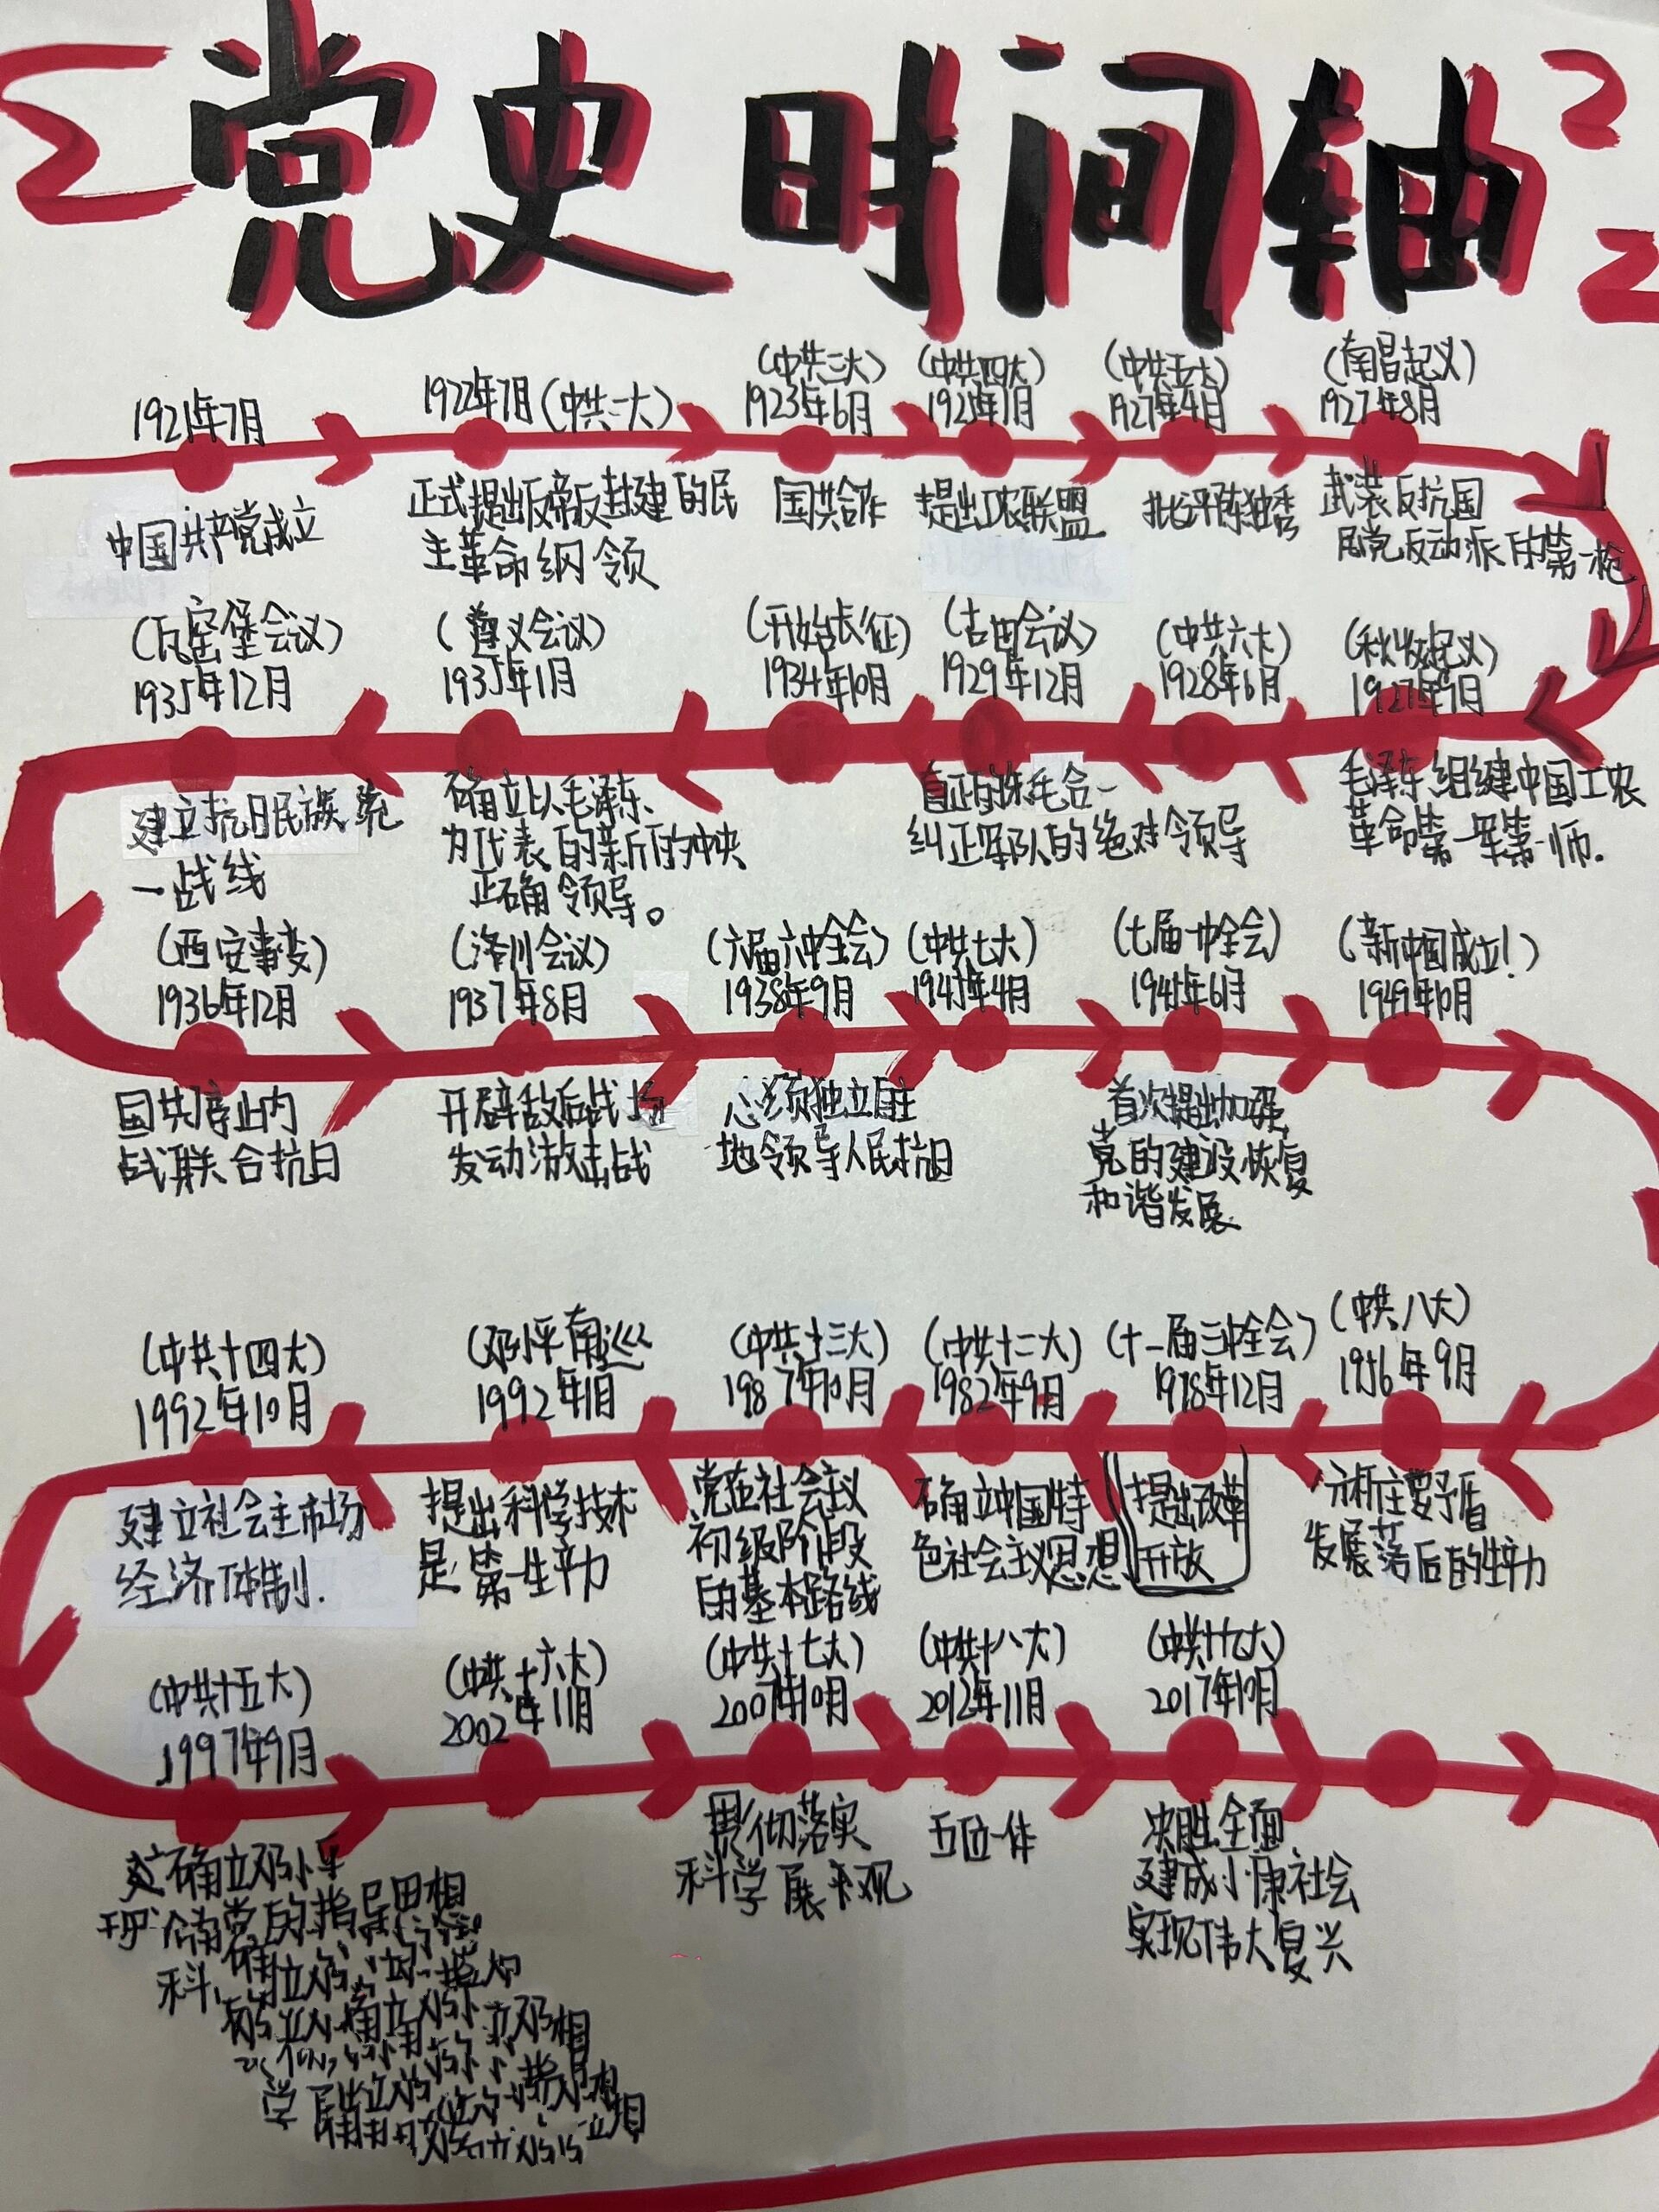 党史时间轴
1921年7月
中国共产党成立
1922年7月(中共二大)
正式提出反帝反封建的民
主革命纲领
(中共三大)
1923年6月
国共合作
(中共四大)
1925年1月
提出工农联盟
(中共五大)
1927年4月
批评陈独秀
(南昌起义)
1927年8月
武装反抗国
民党反动派的第一枪
(秋收起义)
1927年9月
毛泽东组建中国工农
革命第一军第一师.
(中共六大)
1928年6月
(古田会议)
1929年12月
纠正军队的绝对领导
(开始长征)
1934年10月
(遵义会议)
1935年1月
确立以毛泽东、
为代表的新的中央
正确领导。
(瓦窑堡会议)
1935年12月
建立抗日民族统
一战线
(西安事变)
1936年12月
国共停止内
战联合抗日
(洛川会议)
1937年8月
开辟敌后战场
发动游击战
(六届六中全会)
1938年9月
必须独立自主
地领导人民抗日
(中共七大)
1945年4月
(七届一中全会)
1945年6月
首次提出加强
党的建设恢复
和谐发展
(新中国成立!)
1949年10月
(中共八大)
1956年9月
分析主要矛盾
发展落后的生产力
(十一届三中全会)
1978年12月
提出改革
开放
(中共十二大)
1982年9月
确立中国特
色社会主义思想
(中共十三大)
1987年10月
党在社会主义
初级阶段
的基本路线
(邓小平南巡
1992年1月
提出科学技术
是第一生产力
(中共十四大)
1992年10月
建立社会主市场
经济体制.
(中共十五大)
1997年9月
确立邓小平
(中共十六大)
2002年11月
(中共十七大)
2007年10月
贯彻落实
科学展观
(中共十八大)
2012年11月
五位一体
(中共十九大)
2017年10月
决胜全面
建成小康社会
实现伟大复兴